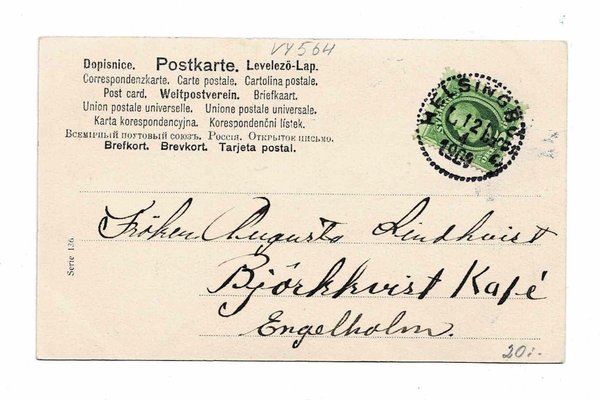 VY564
Dopisnice. Postkarte. Levelező-Lap.
Correspondenzkarte. Carte postale. Cartolina postale.
Post card. Weltpostverein. Briefkaart.
Union postale universelle. Unione postale universale.
Karta korespondencyjna. Korespondenční lístek.
Всемірный почтовый союзъ. Россія. Открытое письмо.
Brefkort. Brevkort. Tarjeta postal.
HELSINGBORG
12
1903
Fröken Augusta Lindhvist
Björkkvist Kafé
Engelholm.
Serie 136
20:-